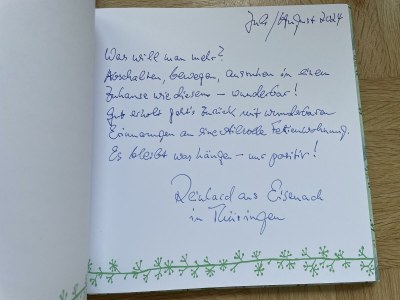 Juli/August 2024
Was will man mehr?
Abschalten, bewegen, ausruhen in einem
Zuhause wie diesem – wunderbar!
Gut erholt geht's zurück mit wunderbaren
Erinnerungen an eine stilvolle Ferienwohnung.
Es bleibt was hängen – nur positiv!
Reinhard aus Eisenach
in Thüringen